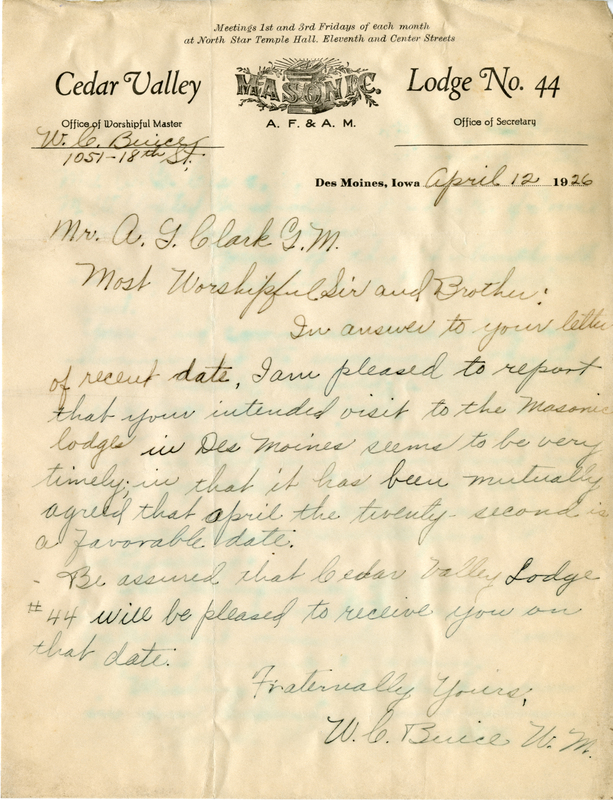 Meetings 1st and 3rd Fridays of each month
at North Star Temple Hall. Eleventh and Center Streets
Cedar Valley MASONIC. Lodge No. 44
A. F. & A. M.
Office of Worshipful Master
Office of Secretary
W. C. Buice
1051-18th St.
Des Moines, Iowa April 12 1926
Mr. A. G. Clark G. M.
Most Worshipful Sir and Brother:
In answer to your letter
of recent date, I am pleased to report
that your intended visit to the Masonic
lodges in Des Moines seems to be very
timely; in that it has been mutually
agreed that april the twenty-second is
a favorable date.
Be assured that Cedar Valley Lodge
#44 will be pleased to receive you on
that date.
Fraternally Yours,
W. C. Buice W. M.